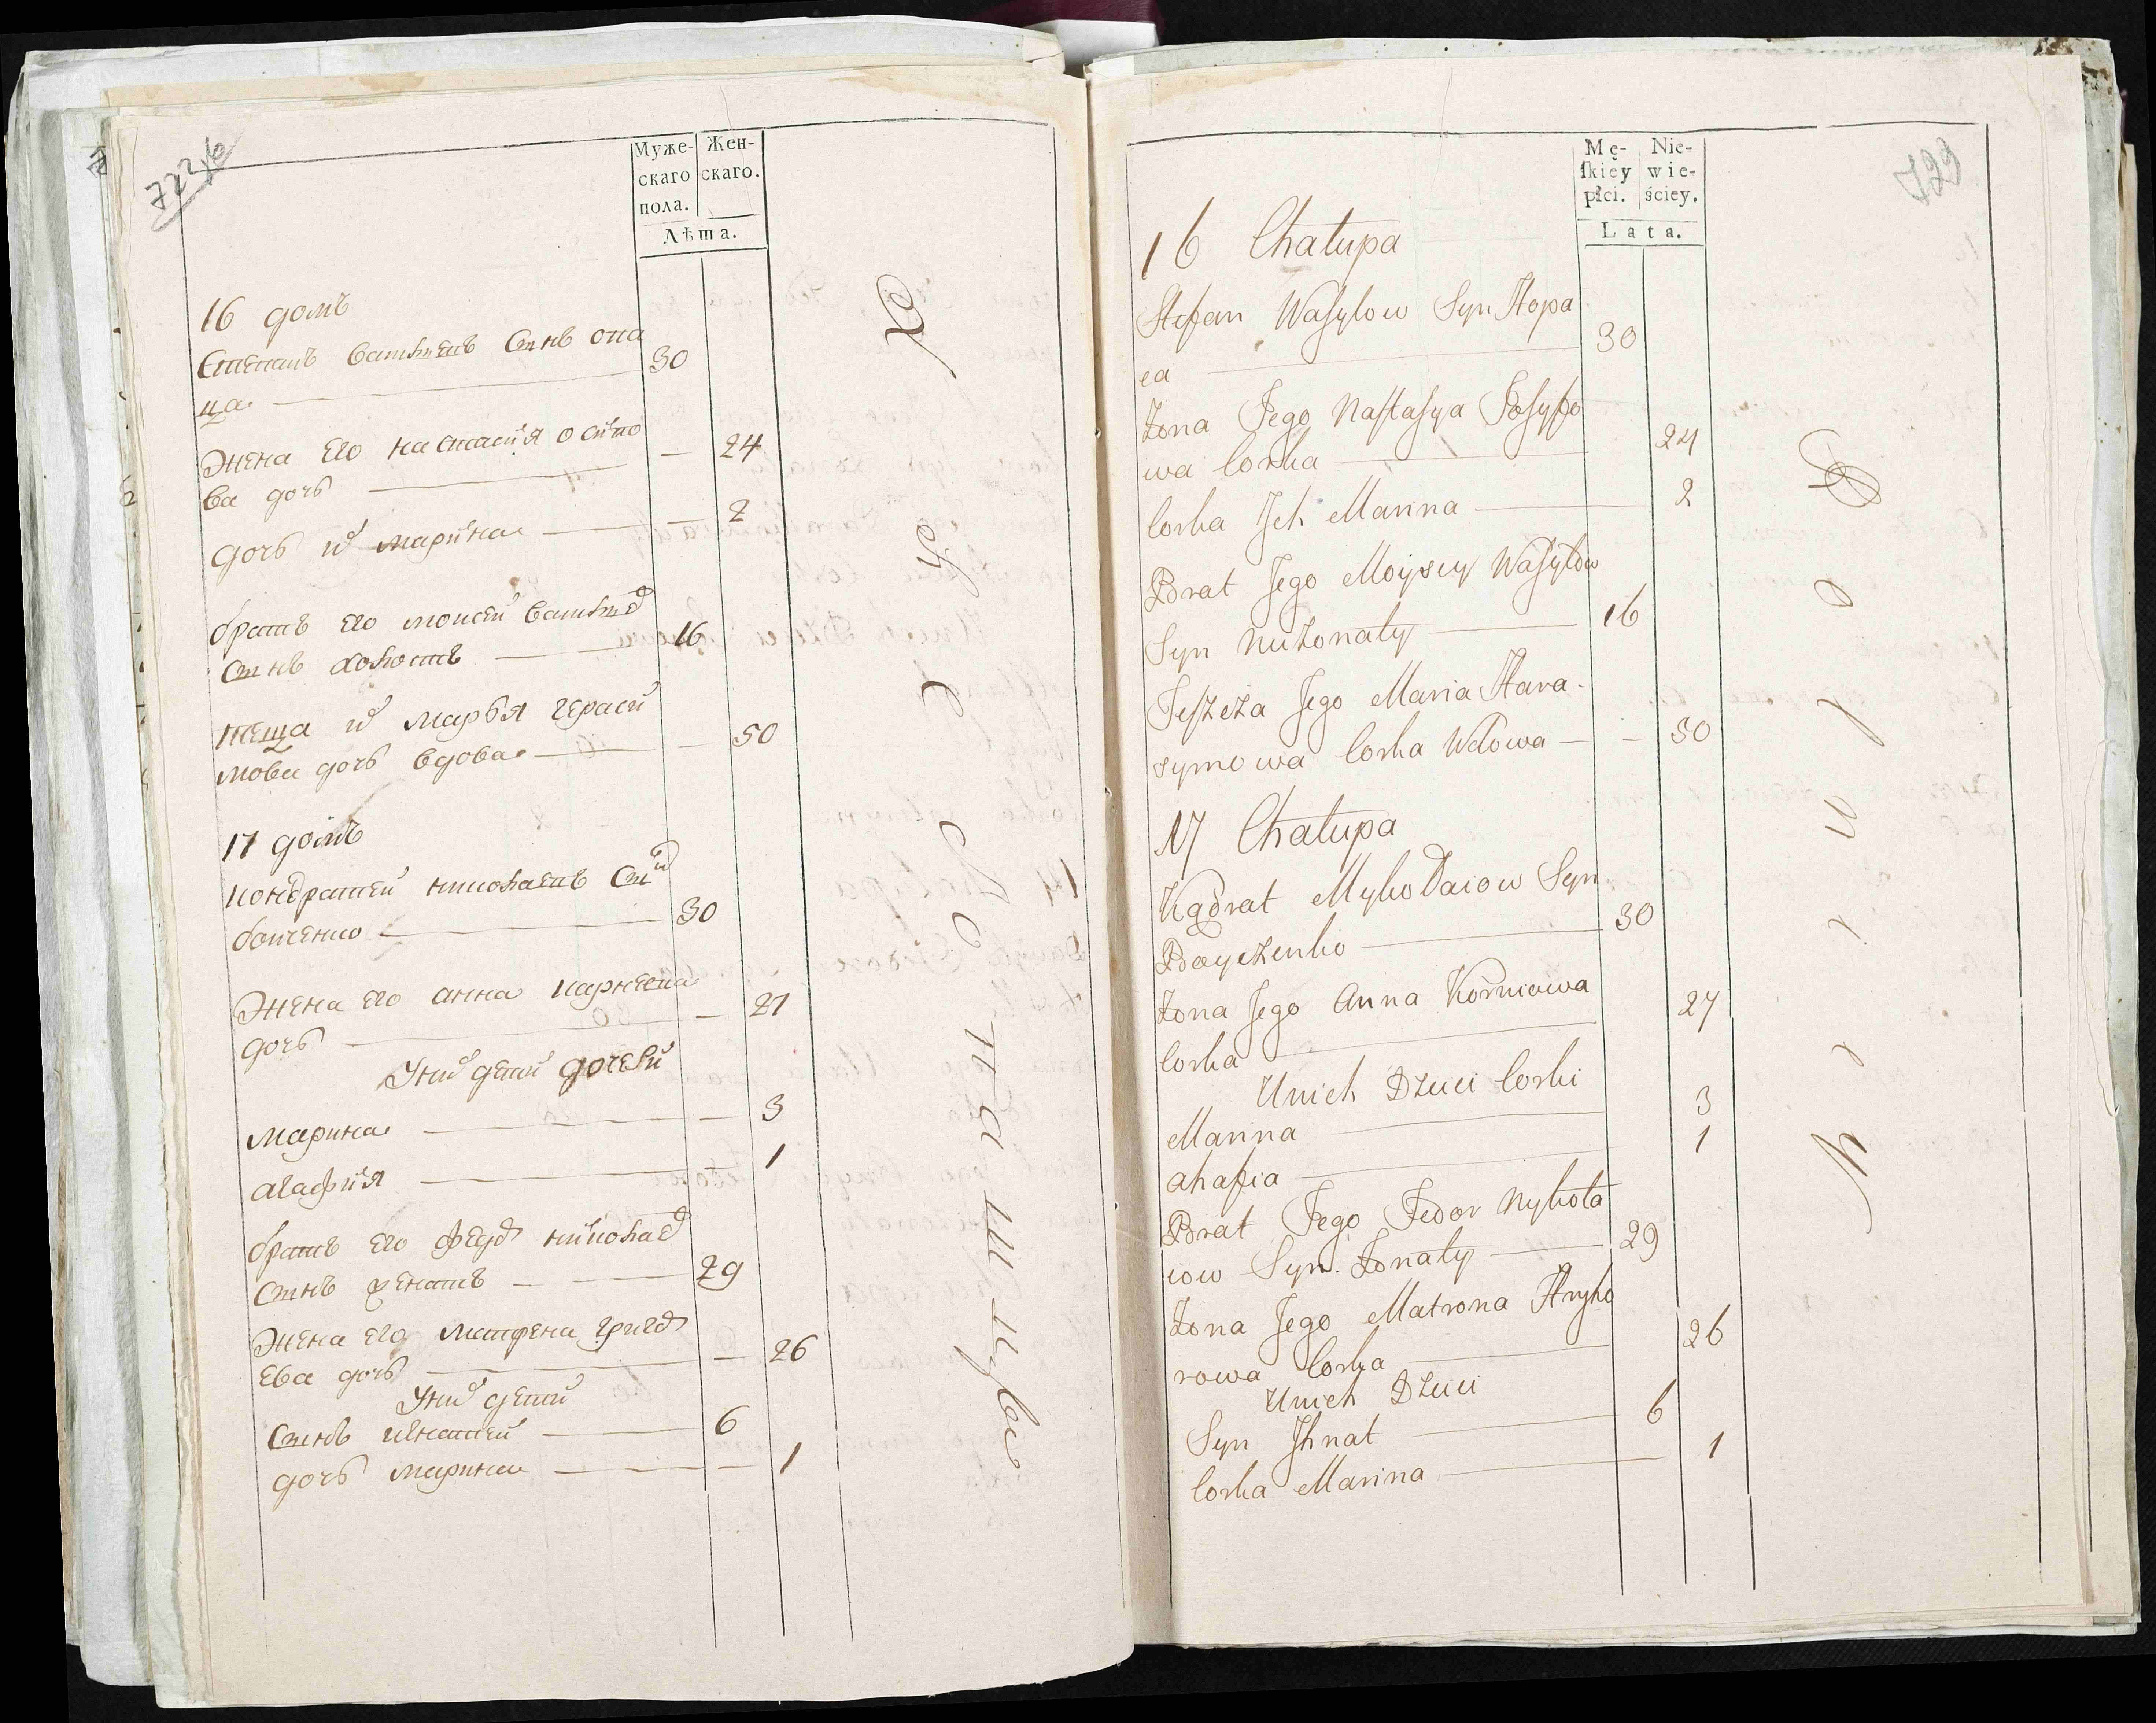 722
Муже-
скаго
пола.
Жен-
скаго.
Лѣта.
16 домъ
Степанъ Васильевъ Сынъ опа
ца
30
Жена его настасия осипо
ва дочь
24
дочь их марина
2
братъ его моисей Васильев
Сынъ холостъ
16
теща их марья гераси
мова дочь вдова
50
17 домъ
Кондратей николаевъ Сын
бойченко
30
Жена его анна карнеева
дочь
27
У них детей дочерей
марина
3
агафия
1
братъ его федор николаев
Сынъ женатъ
29
Жена его матрена григор
ева дочь
26
У них детей
Сынъ игнатей
6
дочь марина
1
729
Mę-
skiey
płci.
Nie-
wie-
ściey.
Lata.
16 Chałupa
Stefan Wasylow Syn Hopa
ca
30
Żona Jego Nastasya Josypo
wa Corka
24
Corka Jch Marina
2
Brat Jego Moysey Wasylow
Syn Nieżonaty
16
Teszcza Jego Maria Hara-
symowa Corka Wdowa
50
17 Chałupa
Kądrat Mykołaiow Syn
Bayczenko
30
Żona Jego Anna Korniowa
Corka
27
U nich Dzieci Corki
Marina
3
ahafia
1
Brat Jego Fedor Nykoła
iow Syn Żonaty
29
Żona Jego Matrona Hryho
rowa Corka
26
U nich Dzieci
Syn Jhnat
6
Corka Marina
1